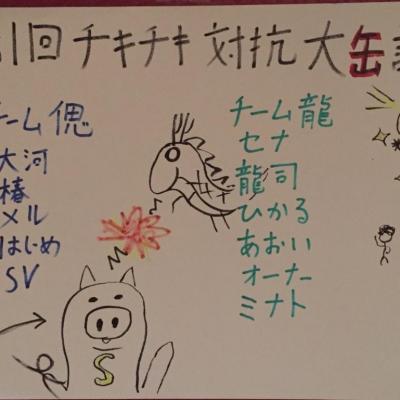 1回チキチキ対抗大缶
チーム偲
大河
椿
メル
はじめ
SV
チーム龍
セナ
龍司
ひかる
あおい
オーナー
ミナト
S